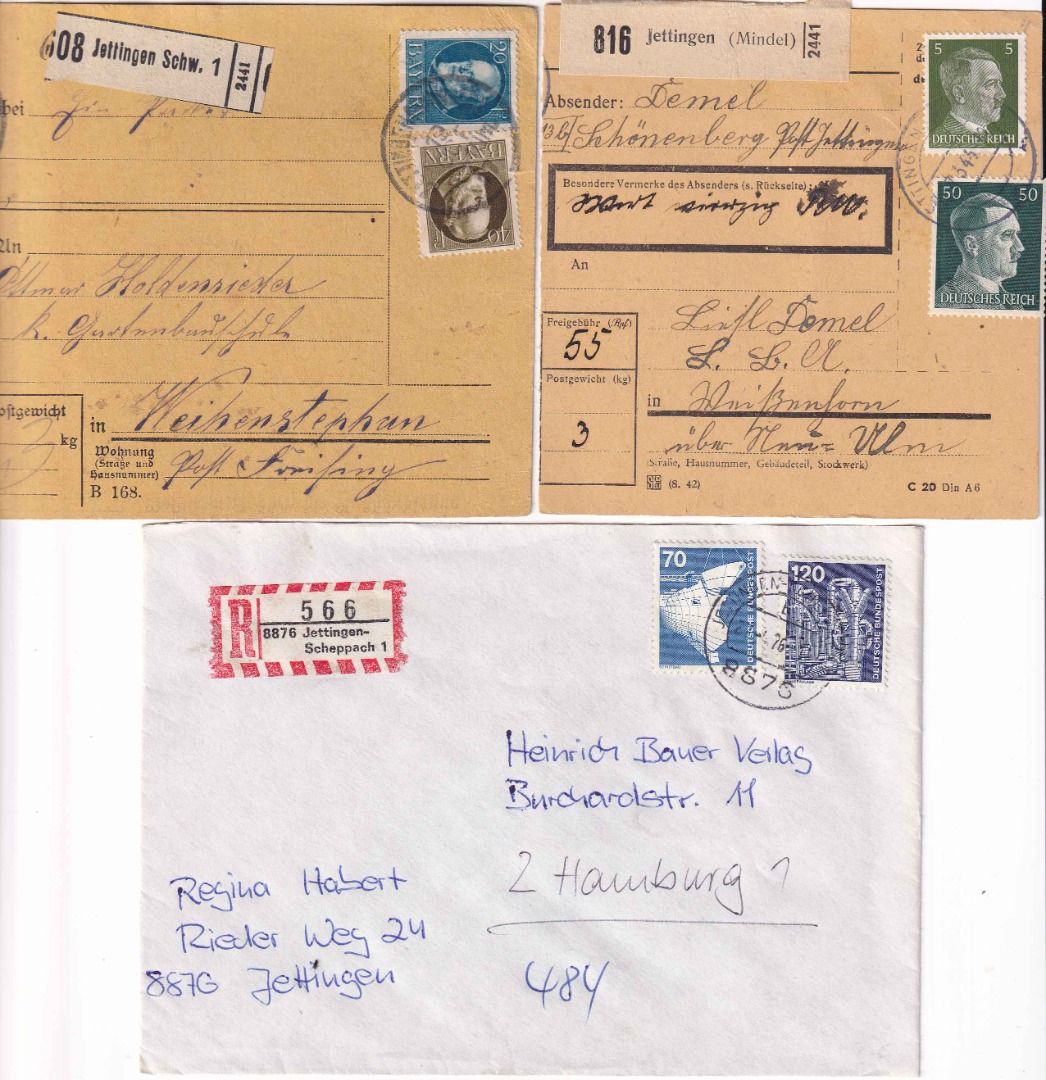 608 Jettingen Schw. 1
2441
bei
An
Ottmar Holdenrieder
k. Gartenbauschule
Postgewicht
kg
in Weihenstephan
Wohnung
(Straße und
Hausnummer)
Post Freising
B 168.
20
BAYERN
BAYERN
40
816 Jettingen (Mindel)
2441
Absender: Demel
13b/ Schönenberg Post Jettingen
Besondere Vermerke des Absenders (s. Rückseite):
Wert vierzig
An
Freigebühr
55
Postgewicht (kg)
3
Liesl Demel
L. B. A.
in Weißenhorn
über Neu-Ulm
(Straße, Hausnummer, Gebäudeteil, Stockwerk)
(8. 42)
C 20 Din A6
5 5
DEUTSCHES REICH
50 50
DEUTSCHES REICH
R
566
8876 Jettingen-
Scheppach 1
70
DEUTSCHE BUNDESPOST
120
DEUTSCHE BUNDESPOST
8876
Heinrich Bauer Verlag
Burchardstr. 11
2 Hamburg 1
484
Regina Habert
Rieder Weg 24
8876 Jettingen